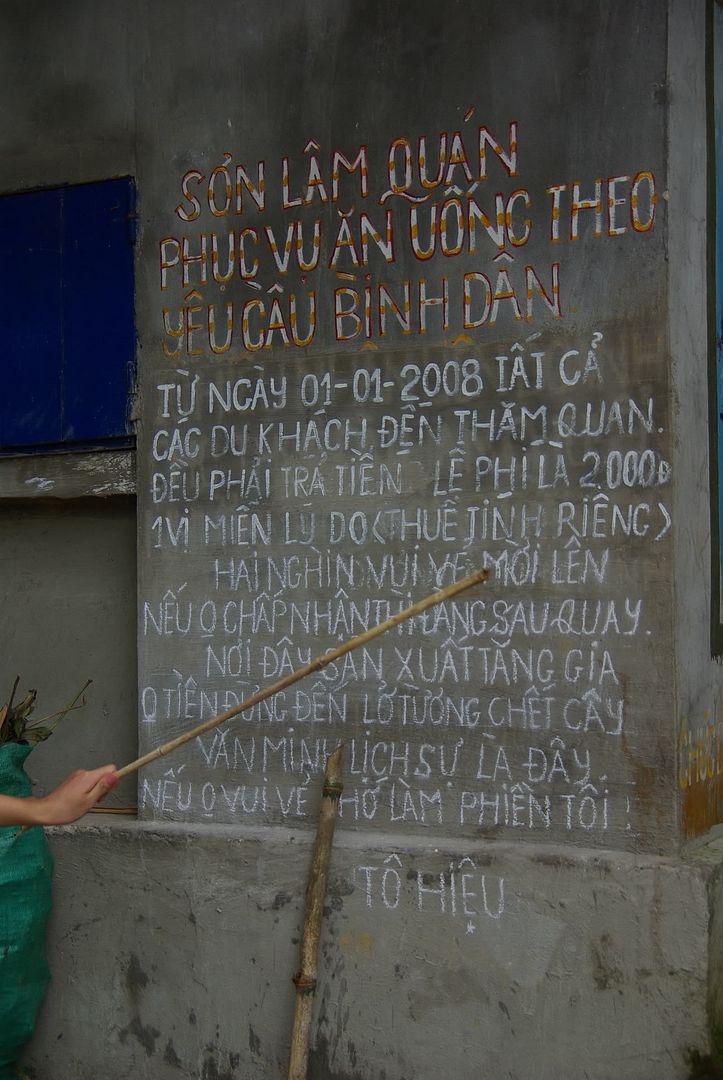 SƠN LÂM QUÁN
PHỤC VỤ ĂN UỐNG THEO
YÊU CẦU BÌNH DÂN
TỪ NGÀY 01-01-2008 TẤT CẢ
CÁC DU KHÁCH ĐẾN THĂM QUAN.
ĐỀU PHẢI TRẢ TIỀN LỆ PHÍ LÀ 2000Đ
1VỊ MIỄN LÝ DO (THUẾ TÍNH RIÊNG)
HAI NGHÌN VUI VẺ MỜI LÊN
NẾU O CHẤP NHẬN THÌ ĐẰNG SAU QUAY.
NƠI ĐÂY SẢN XUẤT TĂNG GIA
O TIỀN ĐỪNG ĐẾN LỞ TƯỜNG CHẾT CÂY
VĂN MINH LỊCH SỰ LÀ ĐÂY
NẾU O VUI VẺ CHỚ LÀM PHIỀN TÔI!
TÔ HIỆU